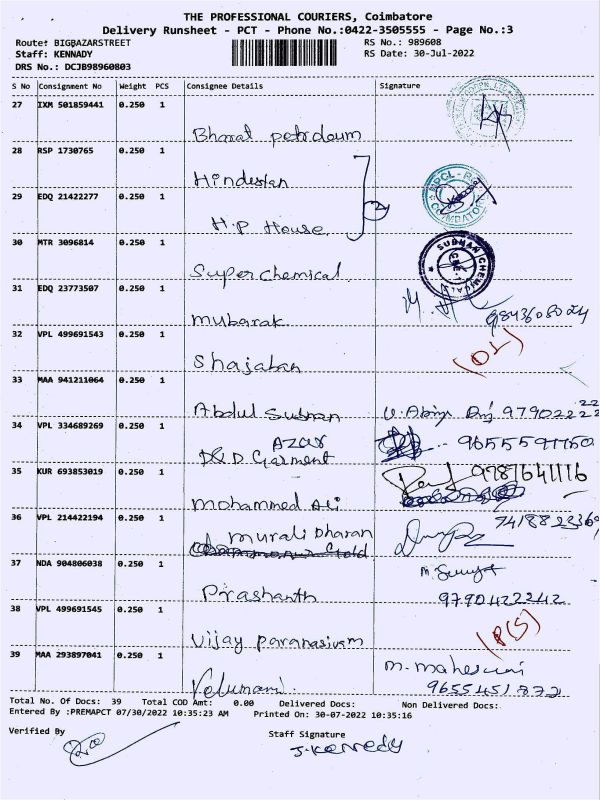 THE PROFESSIONAL COURIERS, Coimbatore
Delivery Runsheet - PCT - Phone No.:0422-3505555 - Page No.:3
Route: BIGBAZARSTREET RS No.: 989608
Staff: KENNADY RS Date: 30-Jul-2022
DRS No.: DCJB98960803
S No Consignment No Weight PCS Consignee Details Signature
27 IXM 501859441 0.250 1
Bharat petroleum
28 RSP 1730765 0.250 1
Hindestan
29 EDQ 21422277 0.250 1
H.P House
30 MTR 3096814 0.250 1
SUBHAN CHEMICALS
Super chemical
31 EDQ 23773507 0.250 1
mubarak
32 VPL 499691543 0.250 1
(DL)
Shajahan
33 MAA 941211064 0.250 1
Abdul Subhan
34 VPL 334689269 0.250 1
AZAR
D&D Garment
35 KUR 693853019 0.250 1
9787641116
Mohammed Ali
36 VPL 214422194 0.250 1
murali Dharan
37 NDA 904806038 0.250 1
Prashanth 9790422242
38 VPL 499691545 0.250 1
Vijay Paramasivam
39 MAA 293897041 0.250 1
m. maheswari
Velumani.
Total No. Of Docs: 39 Total COD Amt: 0.00 Delivered Docs: Non Delivered Docs:
Entered By :PREMAPCT 07/30/2022 10:35:23 AM Printed On: 30-07-2022 10:35:16
Verified By Staff Signature
J. Kennedy